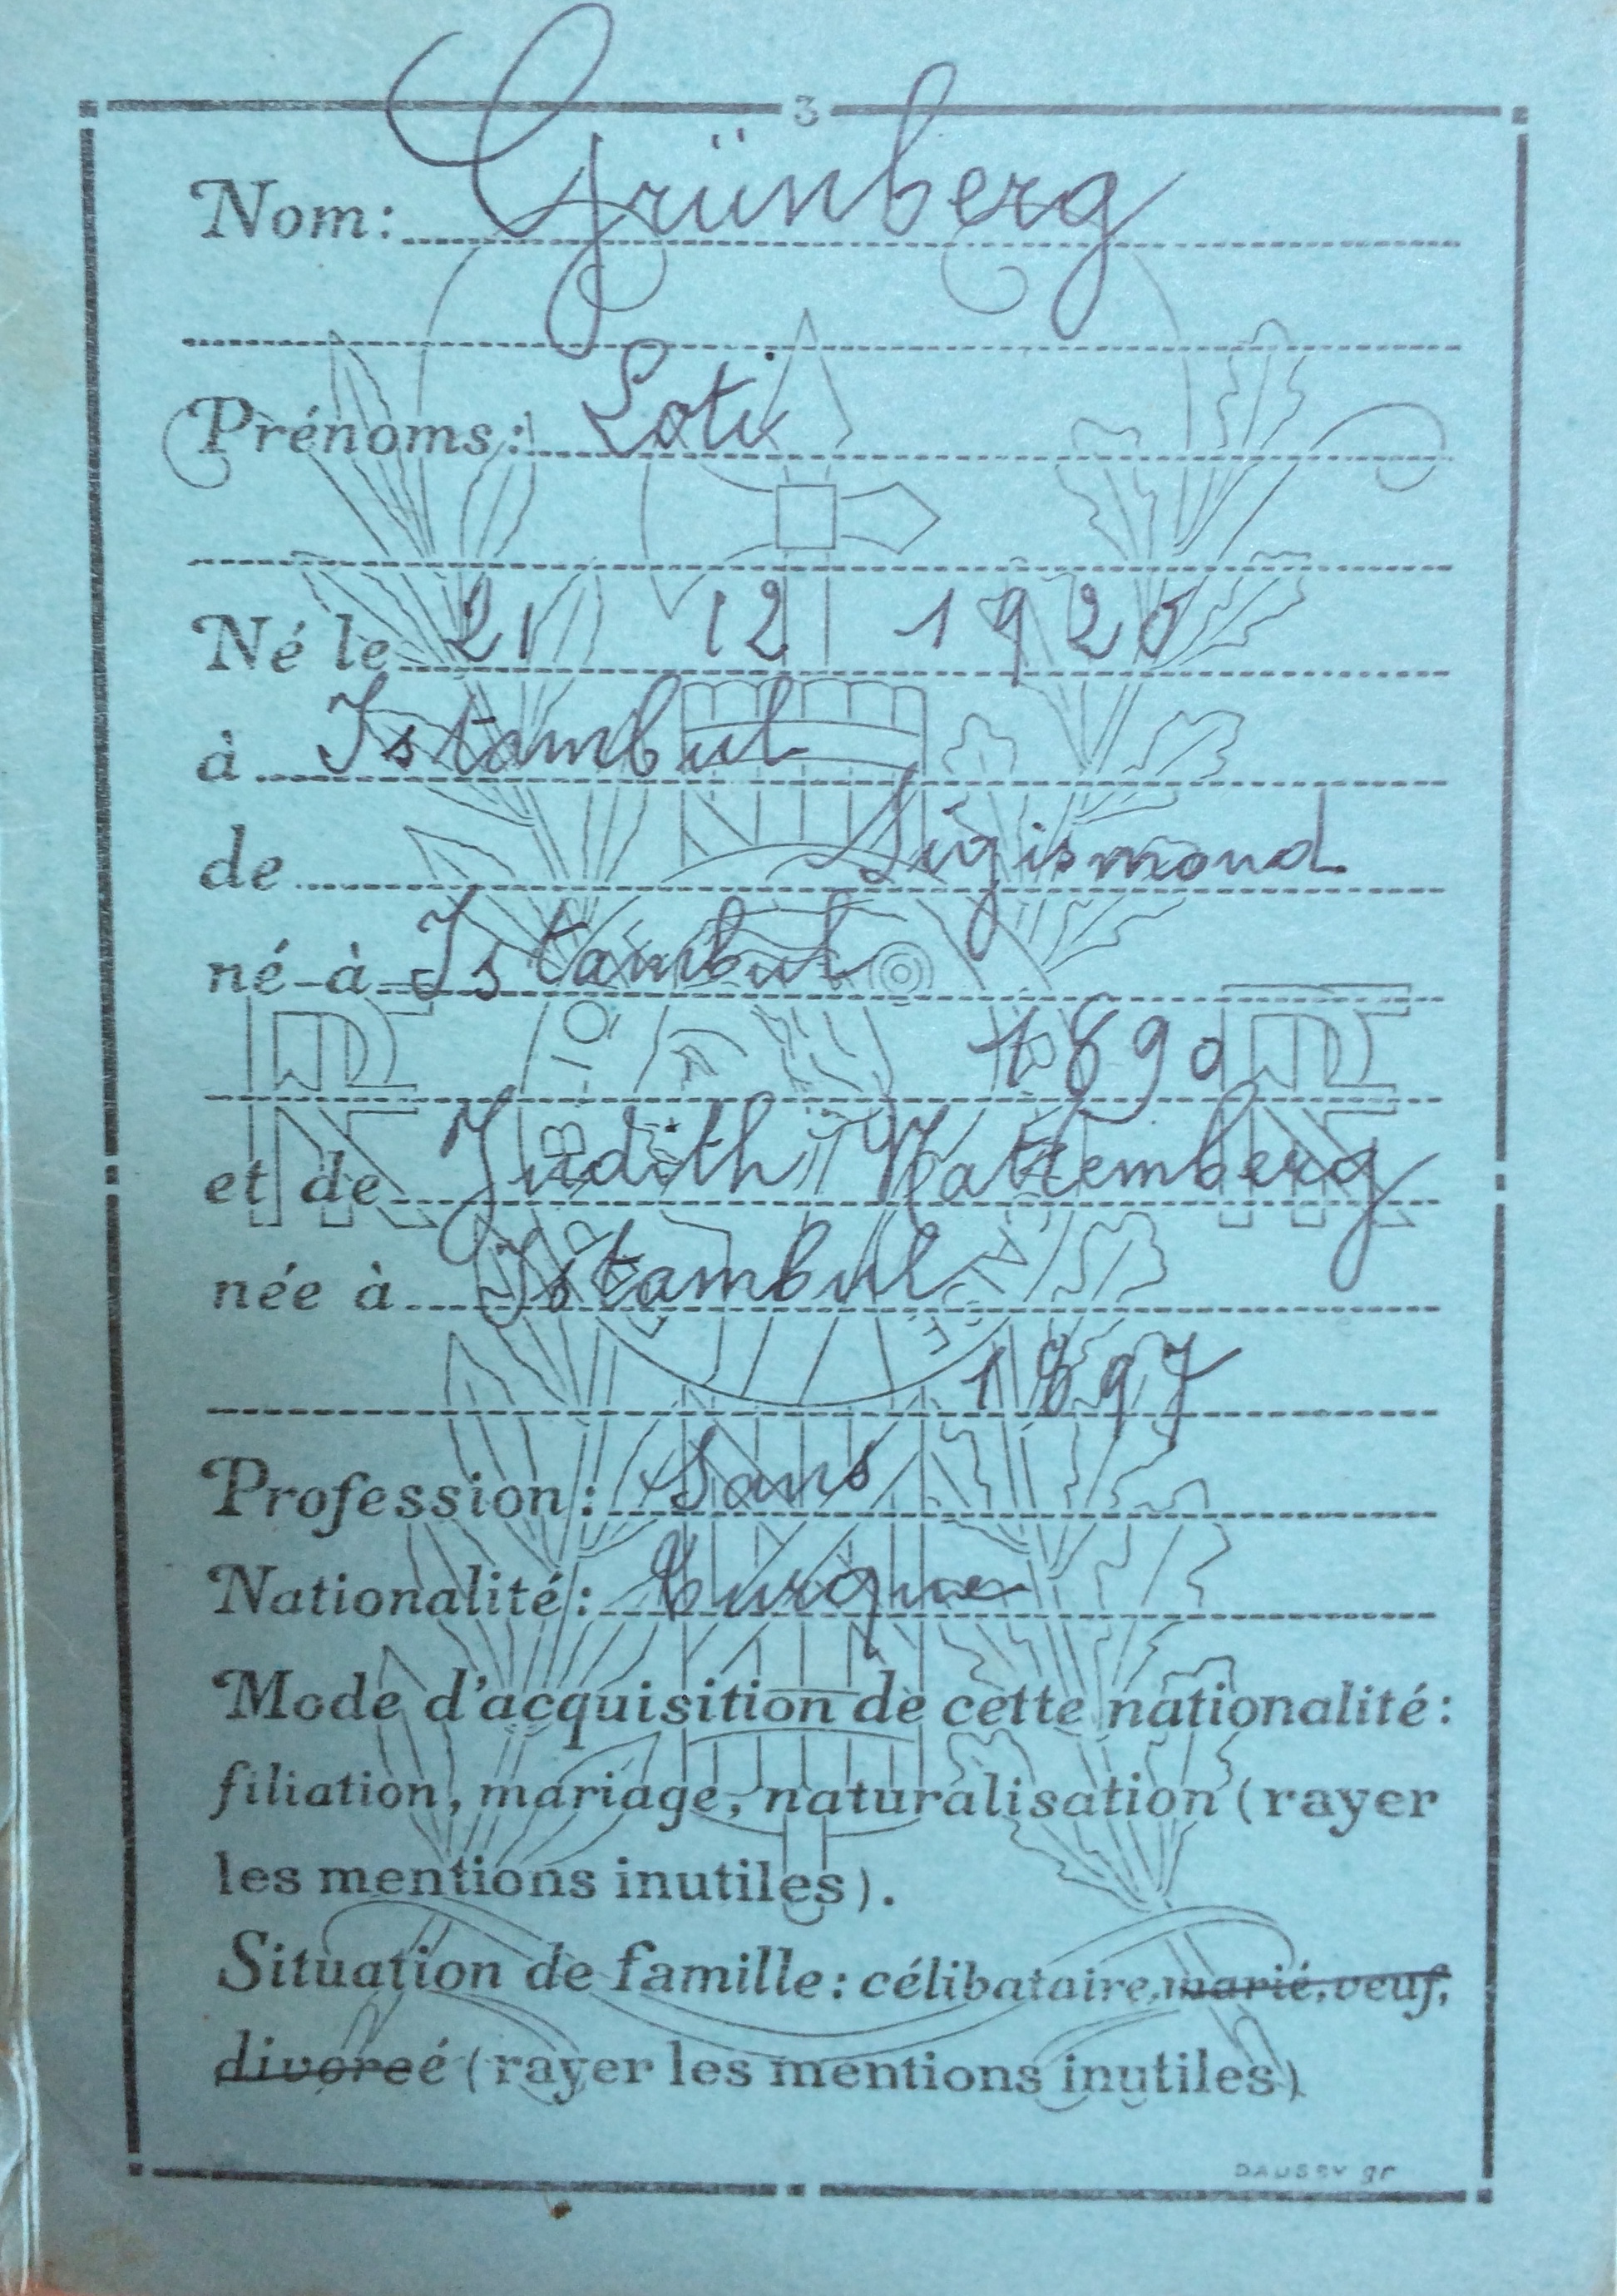 3
Nom: Grünberg
Prénoms: Loti
Né le 21 12 1920
à Istambul
de Sigismond
né à Istambul
1890
et de Judith Wattemberg
née à Istambul
1897
Profession: Sans
Nationalité: Turque
Mode d'acquisition de cette nationalité:
filiation, mariage, naturalisation (rayer
les mentions inutiles).
Situation de famille: célibataire, marié, veuf,
divorcé (rayer les mentions inutiles)
DAUSSY gr